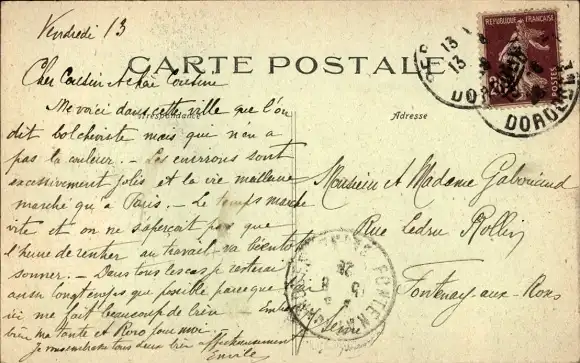 Vendredi 13
CARTE POSTALE
Correspondance
Adresse
Cher Cousin et chère Cousine
Me voici dans cette ville que l'on
dit bolcheviste mais qui n'en a
pas la couleur. - Les environs sont
excessivement jolis et la vie meilleure
marché qu'à Paris. - Le temps marche
vite et on ne s'aperçoit pas que
l'heure de rentrer au travail va bientôt
sonner. - Dans tous les cas je resterai
aussi longtemps que possible parce que l'air
ici me fait beaucoup de bien
bien ma tante et Roro pour moi.
Je vous embrasse tous deux bien affectueusement
Emile
Monsieur et Madame Gabouriaud
Rue Ledru Rollin
Fontenay-aux-Roses
Seine
REPUBLIQUE FRANÇAISE
POSTES
13
DORDOGNE
FONTENAY